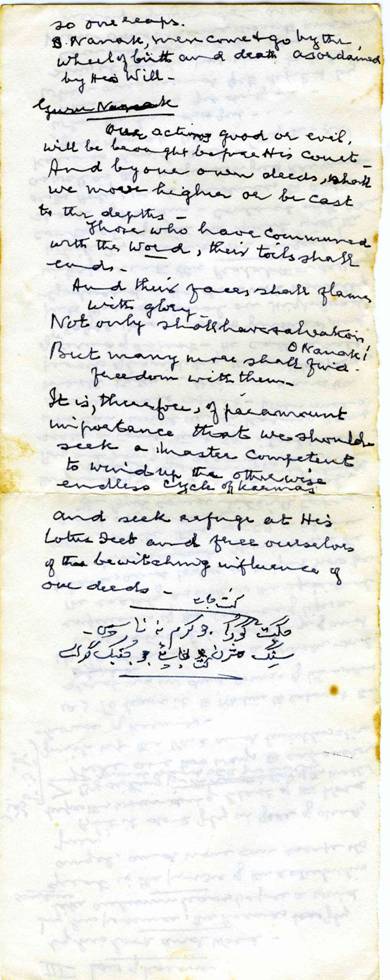 so one reaps.
O. Nanak, men come & go by the,
wheel of birth and death as ordained
by His Will -
Guru Nanak
Our actions good or evil,
will be brought before His Court -
And by our own deeds, shall
we move higher or be cast
to the depths -
Those who have communed
with the Word, their toils shall
end. -
And their faces shall flame
with glory -
Not only shall have salvation
O Nanak!
But many more shall find
freedom with them -
It is, therefore, of paramount
importance that we should
seek a Master competent
to wind up the otherwise
endless cycle of Karmas
and seek refuge at His
Lotus Feet and free ourselves
of the bewitching influence of
our deeds -
جگت گورا جو کرم نہ ناسے -
سنگ شرن جائے جو جنبک گراسے